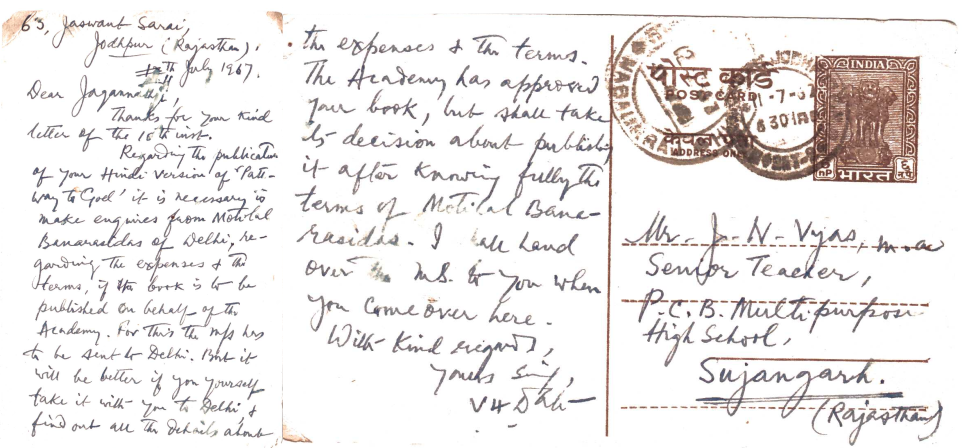 63, Jaswant Sarai,
Jodhpur (Rajasthan).
11th July 1967.
Dear Jagannathji,
Thanks for your kind
letter of the 10th inst.
Regarding the publication
of your Hindi version of 'Path-
way to God' it is necessary to
make enquires from Motilal
Banarasidas of Delhi, re-
garding the expenses & the
terms, if the book is to be
published on behalf of the
Academy. For this the m/s has
to be sent to Delhi. But it
will be better if you yourself
take it with you to Delhi &
find out all the details about
the expenses & the terms.
The Academy has approved
your book, but shall take
its decision about publishing
it after knowing fully the
terms of Motilal Bana-
rasidas. I shall hand
over the m.s. to you when
you come over here.
With kind regards,
Yours sinly,
V H Date
पोस्ट कार्ड
POST CARD
केवल पता
ADDRESS ONLY
11-7-67
630
INDIA
भारत
Mr. J. N. Vyas, M.A.
Senior Teacher,
P.C.B. Multipurpose
High School,
Sujangarh.
(Rajasthan)